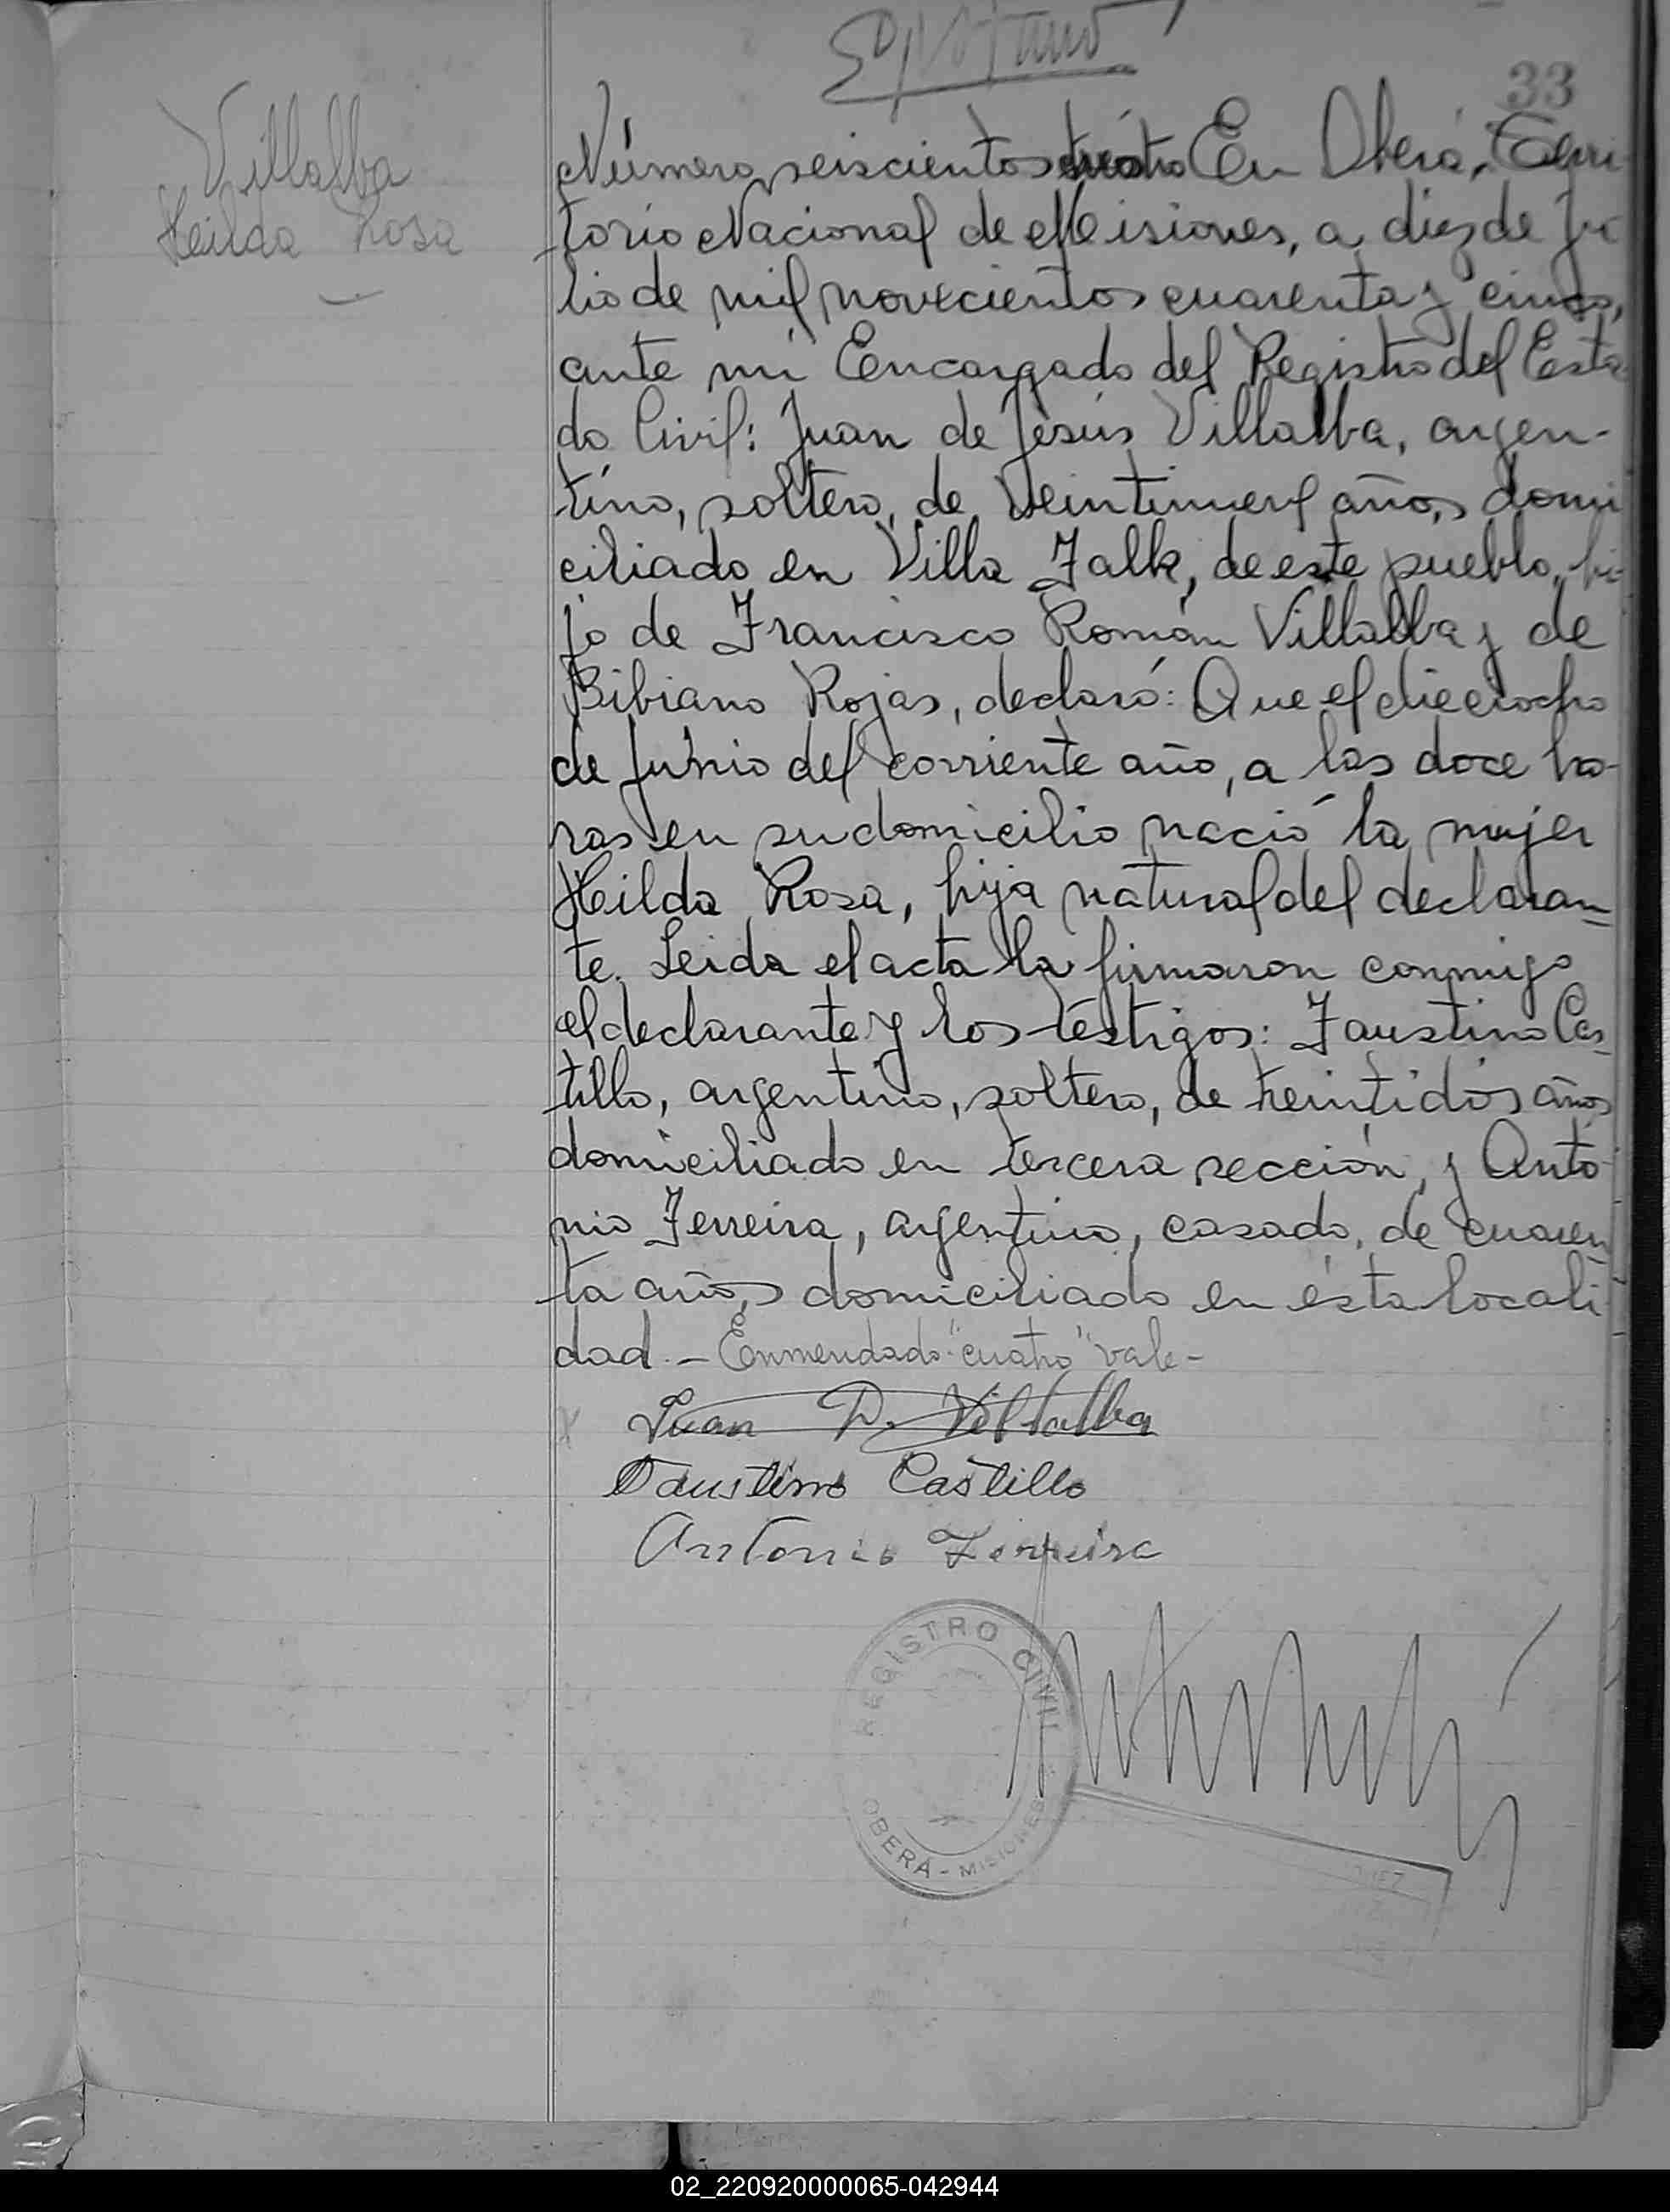 33
Villalba
Hilda Rosa
Número seiscientos cuatro En Oberá, Terri
torio Nacional de Misiones, a diez de ju
lio de mil novecientos cuarenta y cinco,
ante mi Encargado del Registro del Esta
do Civil: Juan de Jesús Villalba, argen-
tino, soltero, de años, domi
ciliado en Villa Falk, de este pueblo, hi-
jo de Francisco Román Villalba y de
Bibiana Rojas, declaró: Que el dieciocho
de Junio del corriente año, a las doce ho-
ras en su domicilio nació la mujer
Hilda Rosa, hija natural del declaran-
te. Leida el acta la firmaron conmigo
el declarante y los testigos: Faustino Cas-
tillo, argentino, soltero, de treintidós años
domiciliado en tercera sección, y Anto
nio Ferreira, argentino, casado, de cuaren
ta años, domiciliado en ésta locali
dad.- Enmendado "cuatro" vale-
Juan D. Villalba
Faustino Castillo
Antonio Ferreira
REGISTRO CIVIL
OBERÁ - MISIONES
02_220920000065-042944